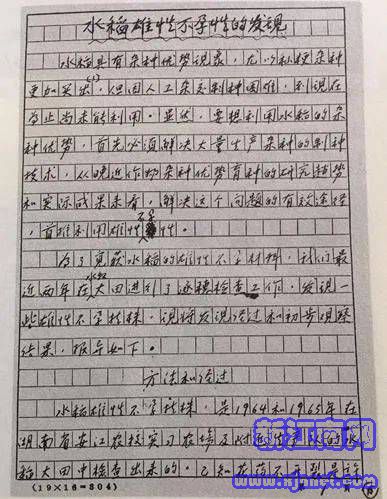 水稻雄性不孕性的发现
水稻具有杂种优势现象，尤以籼粳杂种
更加突出(1)，但因人工杂交制种困难，到现在
为止尚未能利用。显然，要想利用水稻的杂
种优势，首先必须解决大量生产杂种的制种
技术，从晚近作物杂种优势育种的研究趋势
和实际成果来看，解决这个问题的有效途径，
首推利用雄性不孕性。
为了获得水稻的雄性不孕材料，我们最
近两年在水稻大田进行了逐穗检查工作，发现一
些雄性不孕植株，现将发现经过和初步观察
结果，报导如下。
方法和经过
水稻雄性不孕植株，是1964和1965年在
湖南省安江农校实习农场及附近生产队的水
稻大田中检查出来的。已知花药不开裂是
(19×16=304)